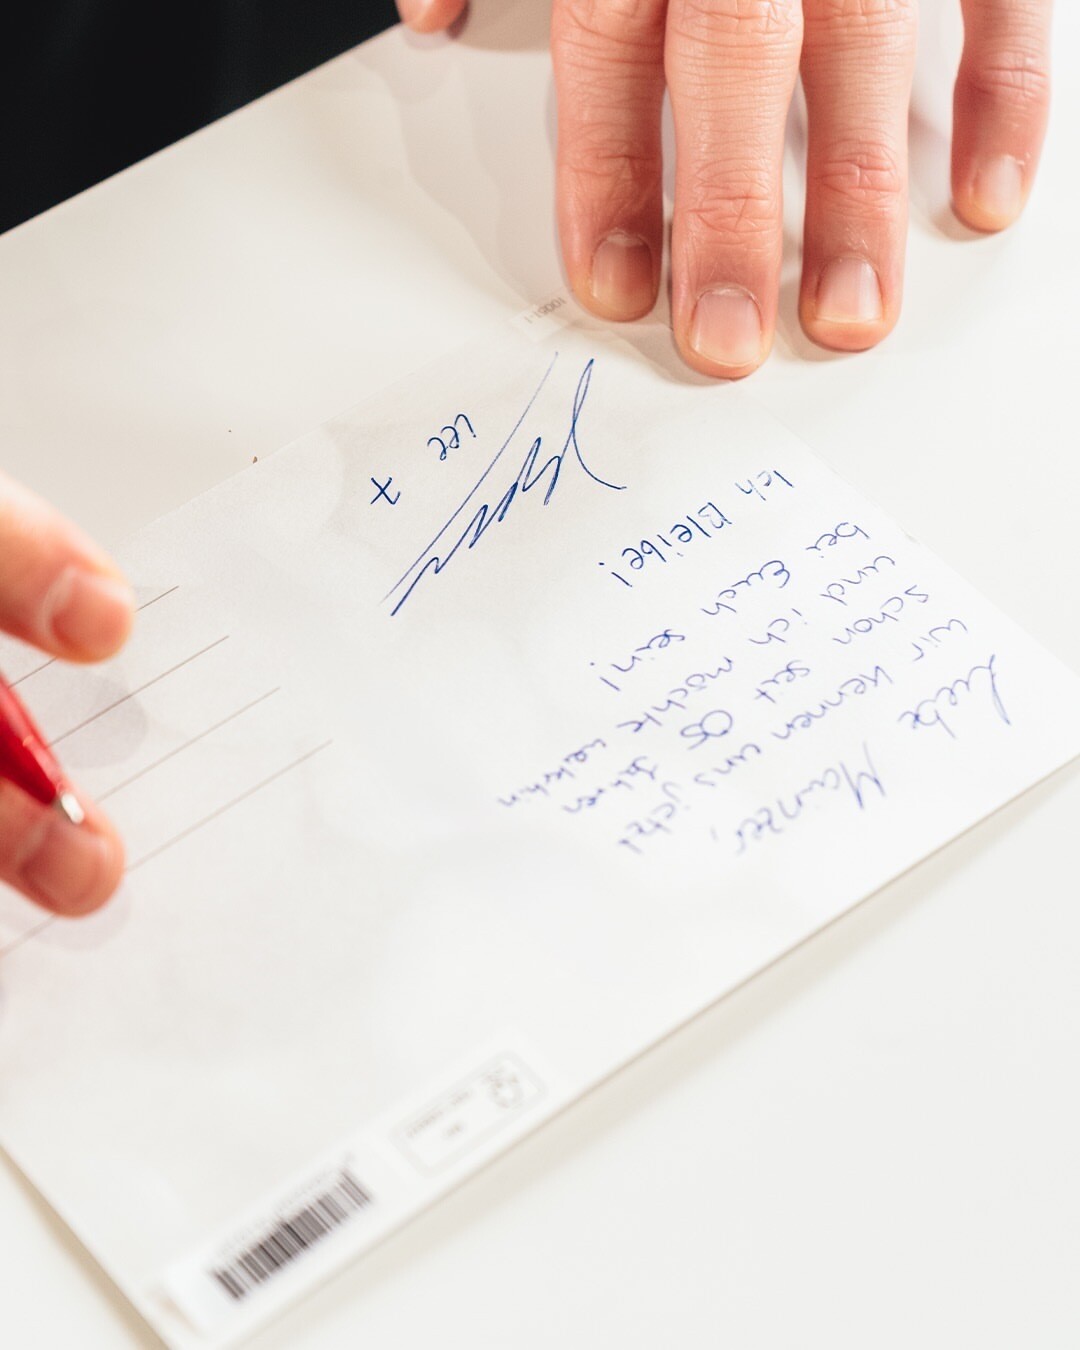 Liebe Mainzer,
wir kennen uns jetzt
schon seit 05 Jahren
und ich möchte weiterhin
bei Euch sein!
Ich Bleibe!
Lee
7
10051-1